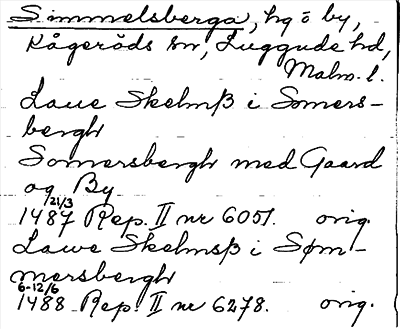 Simmelsberga, hg o by,
Kågeröds sn, Luggude hd,
Malm. l.
Laue Skelmß i Somers-
bergh
Somersbergh med Gaard
og By
21/3
1487 Rep. II nr 6051. orig.
Lawe Skelmsß i Søm-
mersbergh
6-12/6
1488 Rep. II nr 6278. orig.